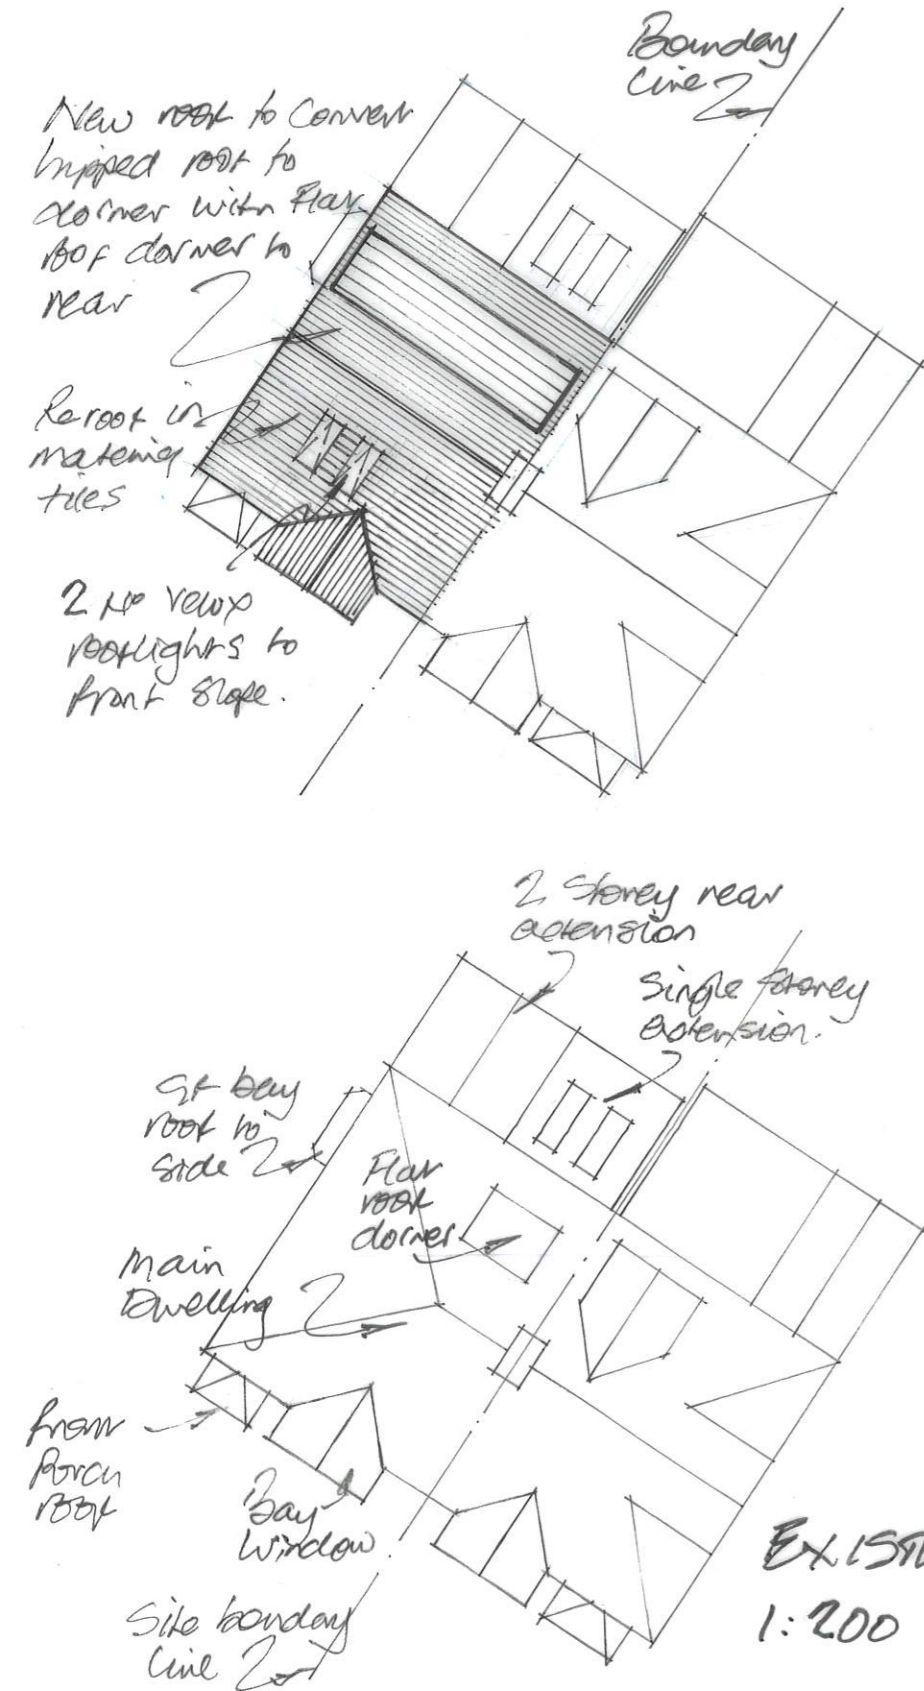 Boundary
Line
New roof to convert
hipped roof to
dormer with Flat
roof dormer to
rear
Reroof in
matching
tiles
2 No velux
rooflights to
front slope.
2 Storey rear
extension
Single storey
extension.
GF bay
roof to
side
Flat
roof
dormer
Main
Dwelling
Front
Porch
roof
Bay
Window
Site boundary
Line
EXIST
1:200